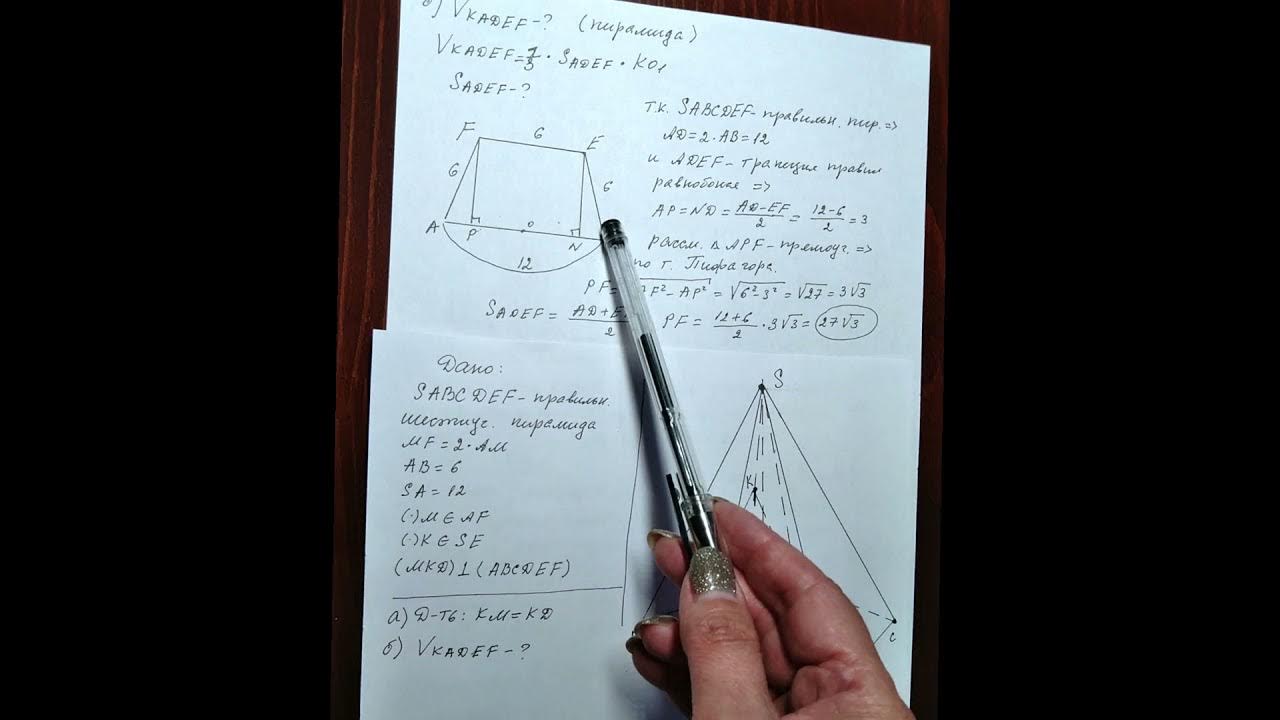 б) VKADEF - ? (пирамида)
VKADEF = 1/3 · SADEF · KO₁
SADEF - ?
т.к. SABCDEF - правильн. пир. =>
AD = 2 · AB = 12
и ADEF - трапеция правил
равнобокая =>
AP = ND = (AD - EF)/2 = (12 - 6)/2 = 3
рассм. △ APF - прямоуг. =>
по т. Пифагора.
F 6 E
6 6
A P O N
12
PF = F² - AP² = √6² - 3² = √27 = 3√3
SADEF = AD + E 2 PF = (12 + 6)/2 · 3√3 = 27√3
Дано:
SABCDEF - правильн.
шестиуг. пирамида
MF = 2 · AM
AB = 6
SA = 12
(·) M ∈ AF
(·) K ∈ SE
(MKD) ⊥ (ABCDEF)
а) Д-ть: KM = KD
б) VKADEF - ?
S
K
C